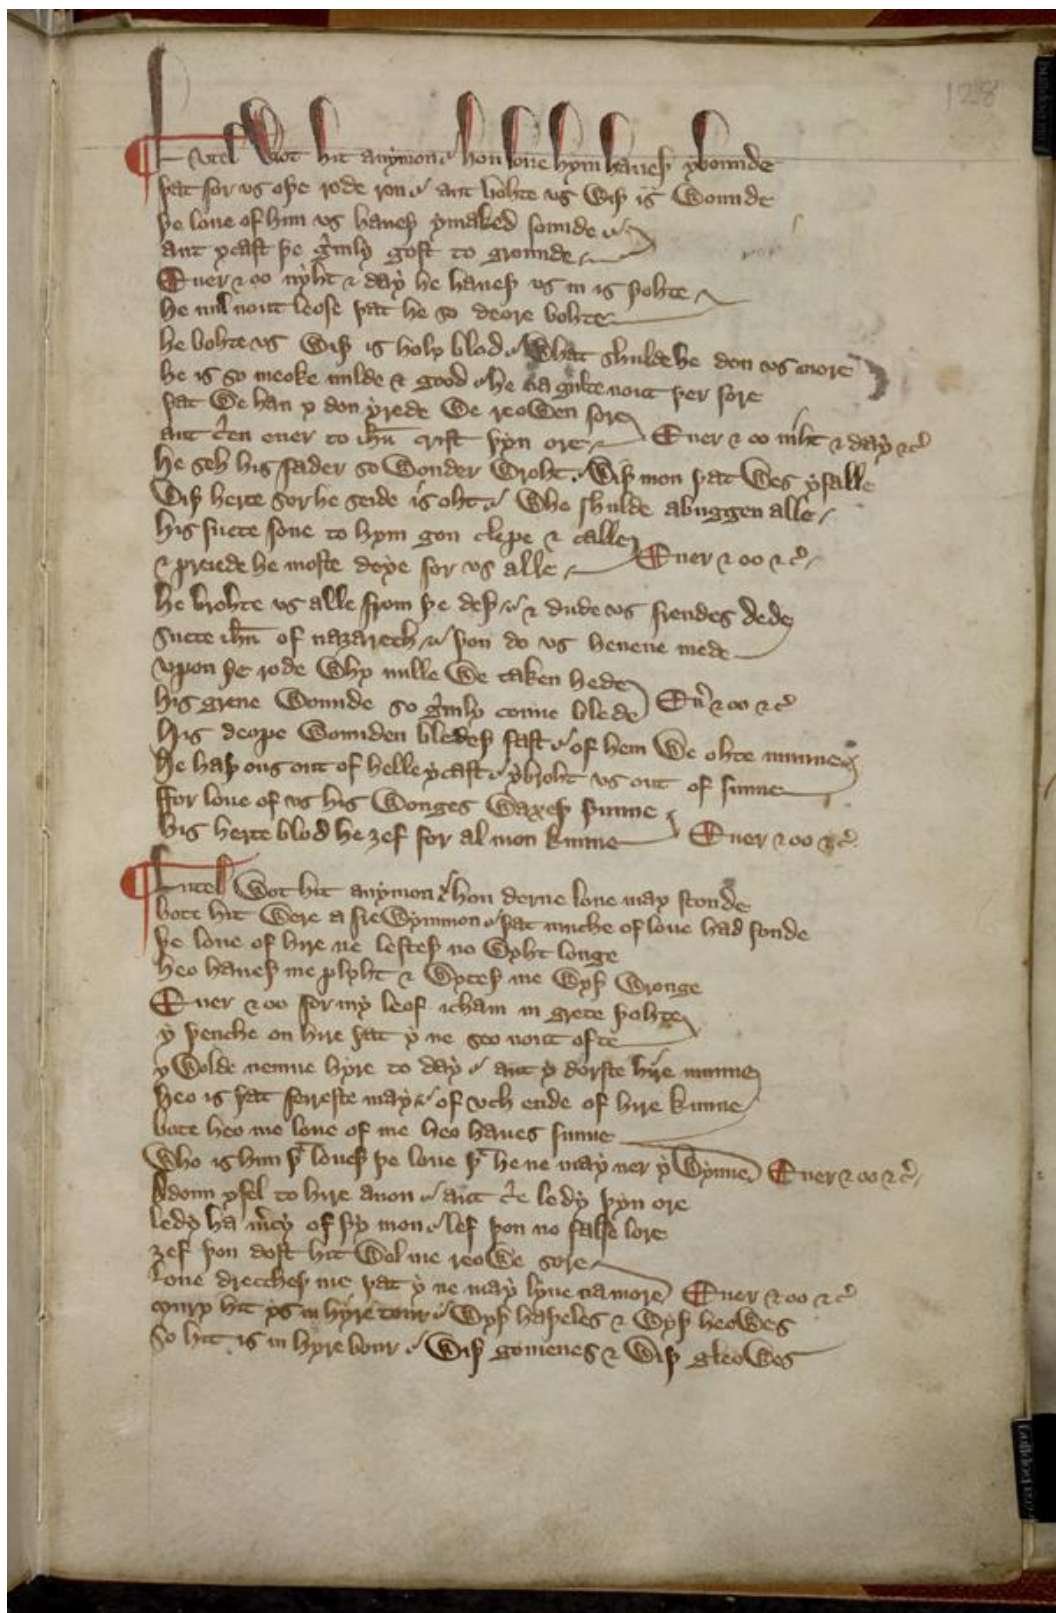 128
Lvtel wot hit anymon hou loue hym haueþ ybounde
þat for vs oþe rode ron ant bohte vs wiþ is wounde
þe loue of him vs haueþ ymaked sounde
ant ycast þe gͥmly gost to grounde
Euer & oo nyht & day he haueþ vs in is þohte
he nul nout leose þat he so deore bohte
he bohte vs wiþ is holy blod what shulde he don vs more
he is so meoke milde & good he na gulte nout þer fore
þat we han y don yrede we reowen sore
ant cͥen euer to ihū crist þyn ore Euer & oo niht & day &c̉
he seh his fader so wonder wroht wiþ mon þat wes yfalle
wiþ herte sor he seide is oht whe shulde abuggen alle
his suete sone to hym gon clepe & calle
& preiede he moste deye for vs alle Euer & oo &c̉
he brohte vs alle from þe deþ & dude vs frendes dede
suete ihū of nazareth þou do vs heuene mede
vpon þe rode why nulle we taken hede
his grene wounde so gͥmly conne blede Eū & oo &c̉
His deope wounden bledeþ fast of hem we ohte munne
he haþ ous out of helle ycast ybroht vs out of sunne
ffor loue of vs his wonges waxeþ þunne
his herte blod he ȝef for al mon kunne Euer & oo &c̉
Lutel wot hit anymon hou derne loue may stonde
bote hit were a fre wymmon þat muche of loue had fonde
þe loue of hire ne lesteþ no wyht longe
heo haueþ me plyht & wyteþ me wyþ wronge
Euer & oo for my leof icham in grete þohte
y þenche on hire þat y ne seo nout ofte
y wolde nemne hyre to day ant y dorste hyre munne
heo is þat feireste may of vch ende of hire kunne
bote heo me loue of me heo haues sunne
who is him þͭ loueþ þe loue þͭ he ne may ner ywynne Euer & oo &c̉
Adoun yfel to hire anon ant cͥe ledy þyn ore
ledy ha mͨcy of þy mon lef þou no false lore
ȝef þou dost hit wol me reowe sore
Loue dreccheþ me þat y ne may lyue namore Euer & oo &c̉
Mury hit ys in hyre tour wyþ haþeles & wyþ heowes
So hit is in hyre bour wiþ gomenes & wiþ gleowes